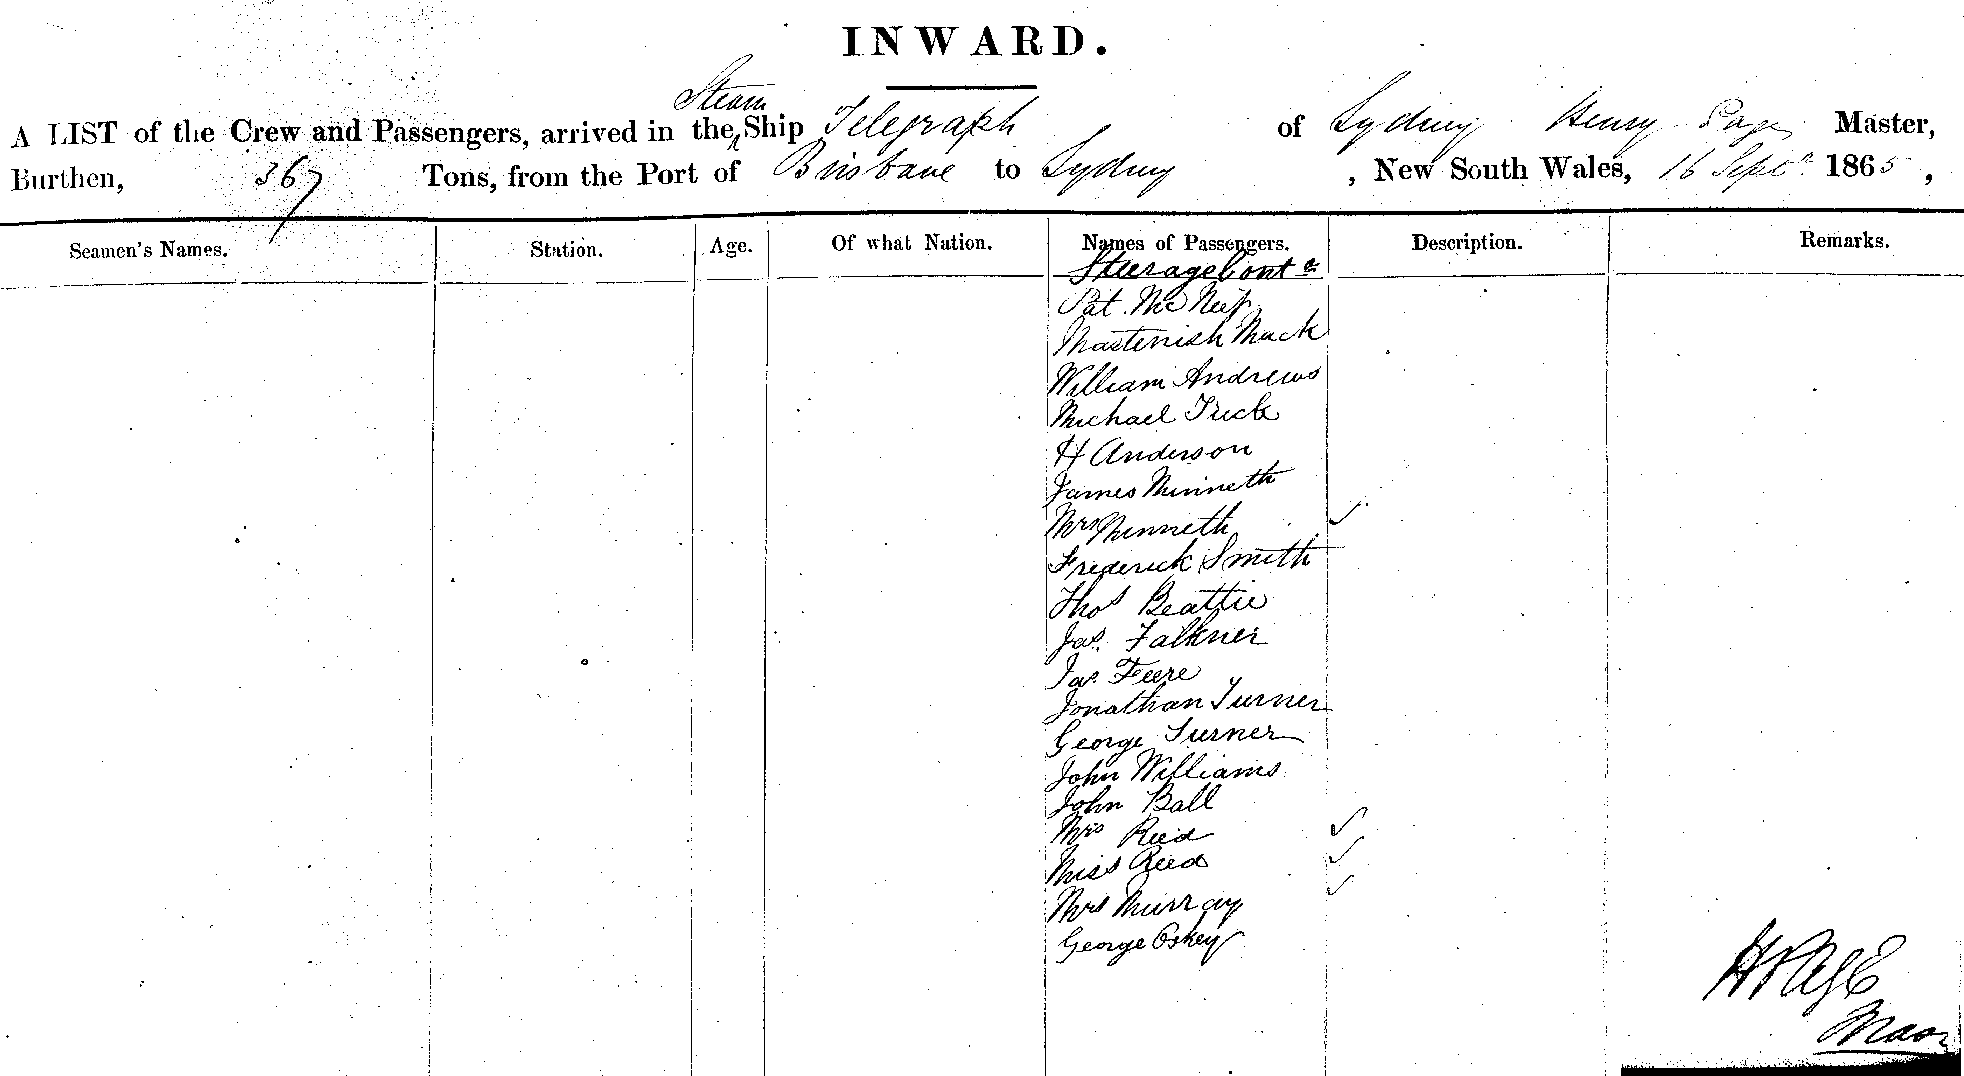 INWARD.
Steam
A LIST of the Crew and Passengers, arrived in the Ship Telegraph of Sydney Henry Page Master,
Burthen, 367 Tons, from the Port of Brisbane to Sydney , New South Wales, 16 Septr 1865 ,
Seamen's Names. Station. Age. Of what Nation. Names of Passengers. Description. Remarks.
Steerage Contd
Pat. Mc
Mack
William Andrews
Michael Tuck
H Anderson
James Minneth
Mrs Minneth ✓
Frederick Smith
Thos Beattie
Jas. Falkner
Jas. Feere
Jonathan Turner
George Turner
John Williams
John Ball
Mrs Reed ✓
Miss Reed ✓
Mrs Murray ✓
George Oskey
H PAGE